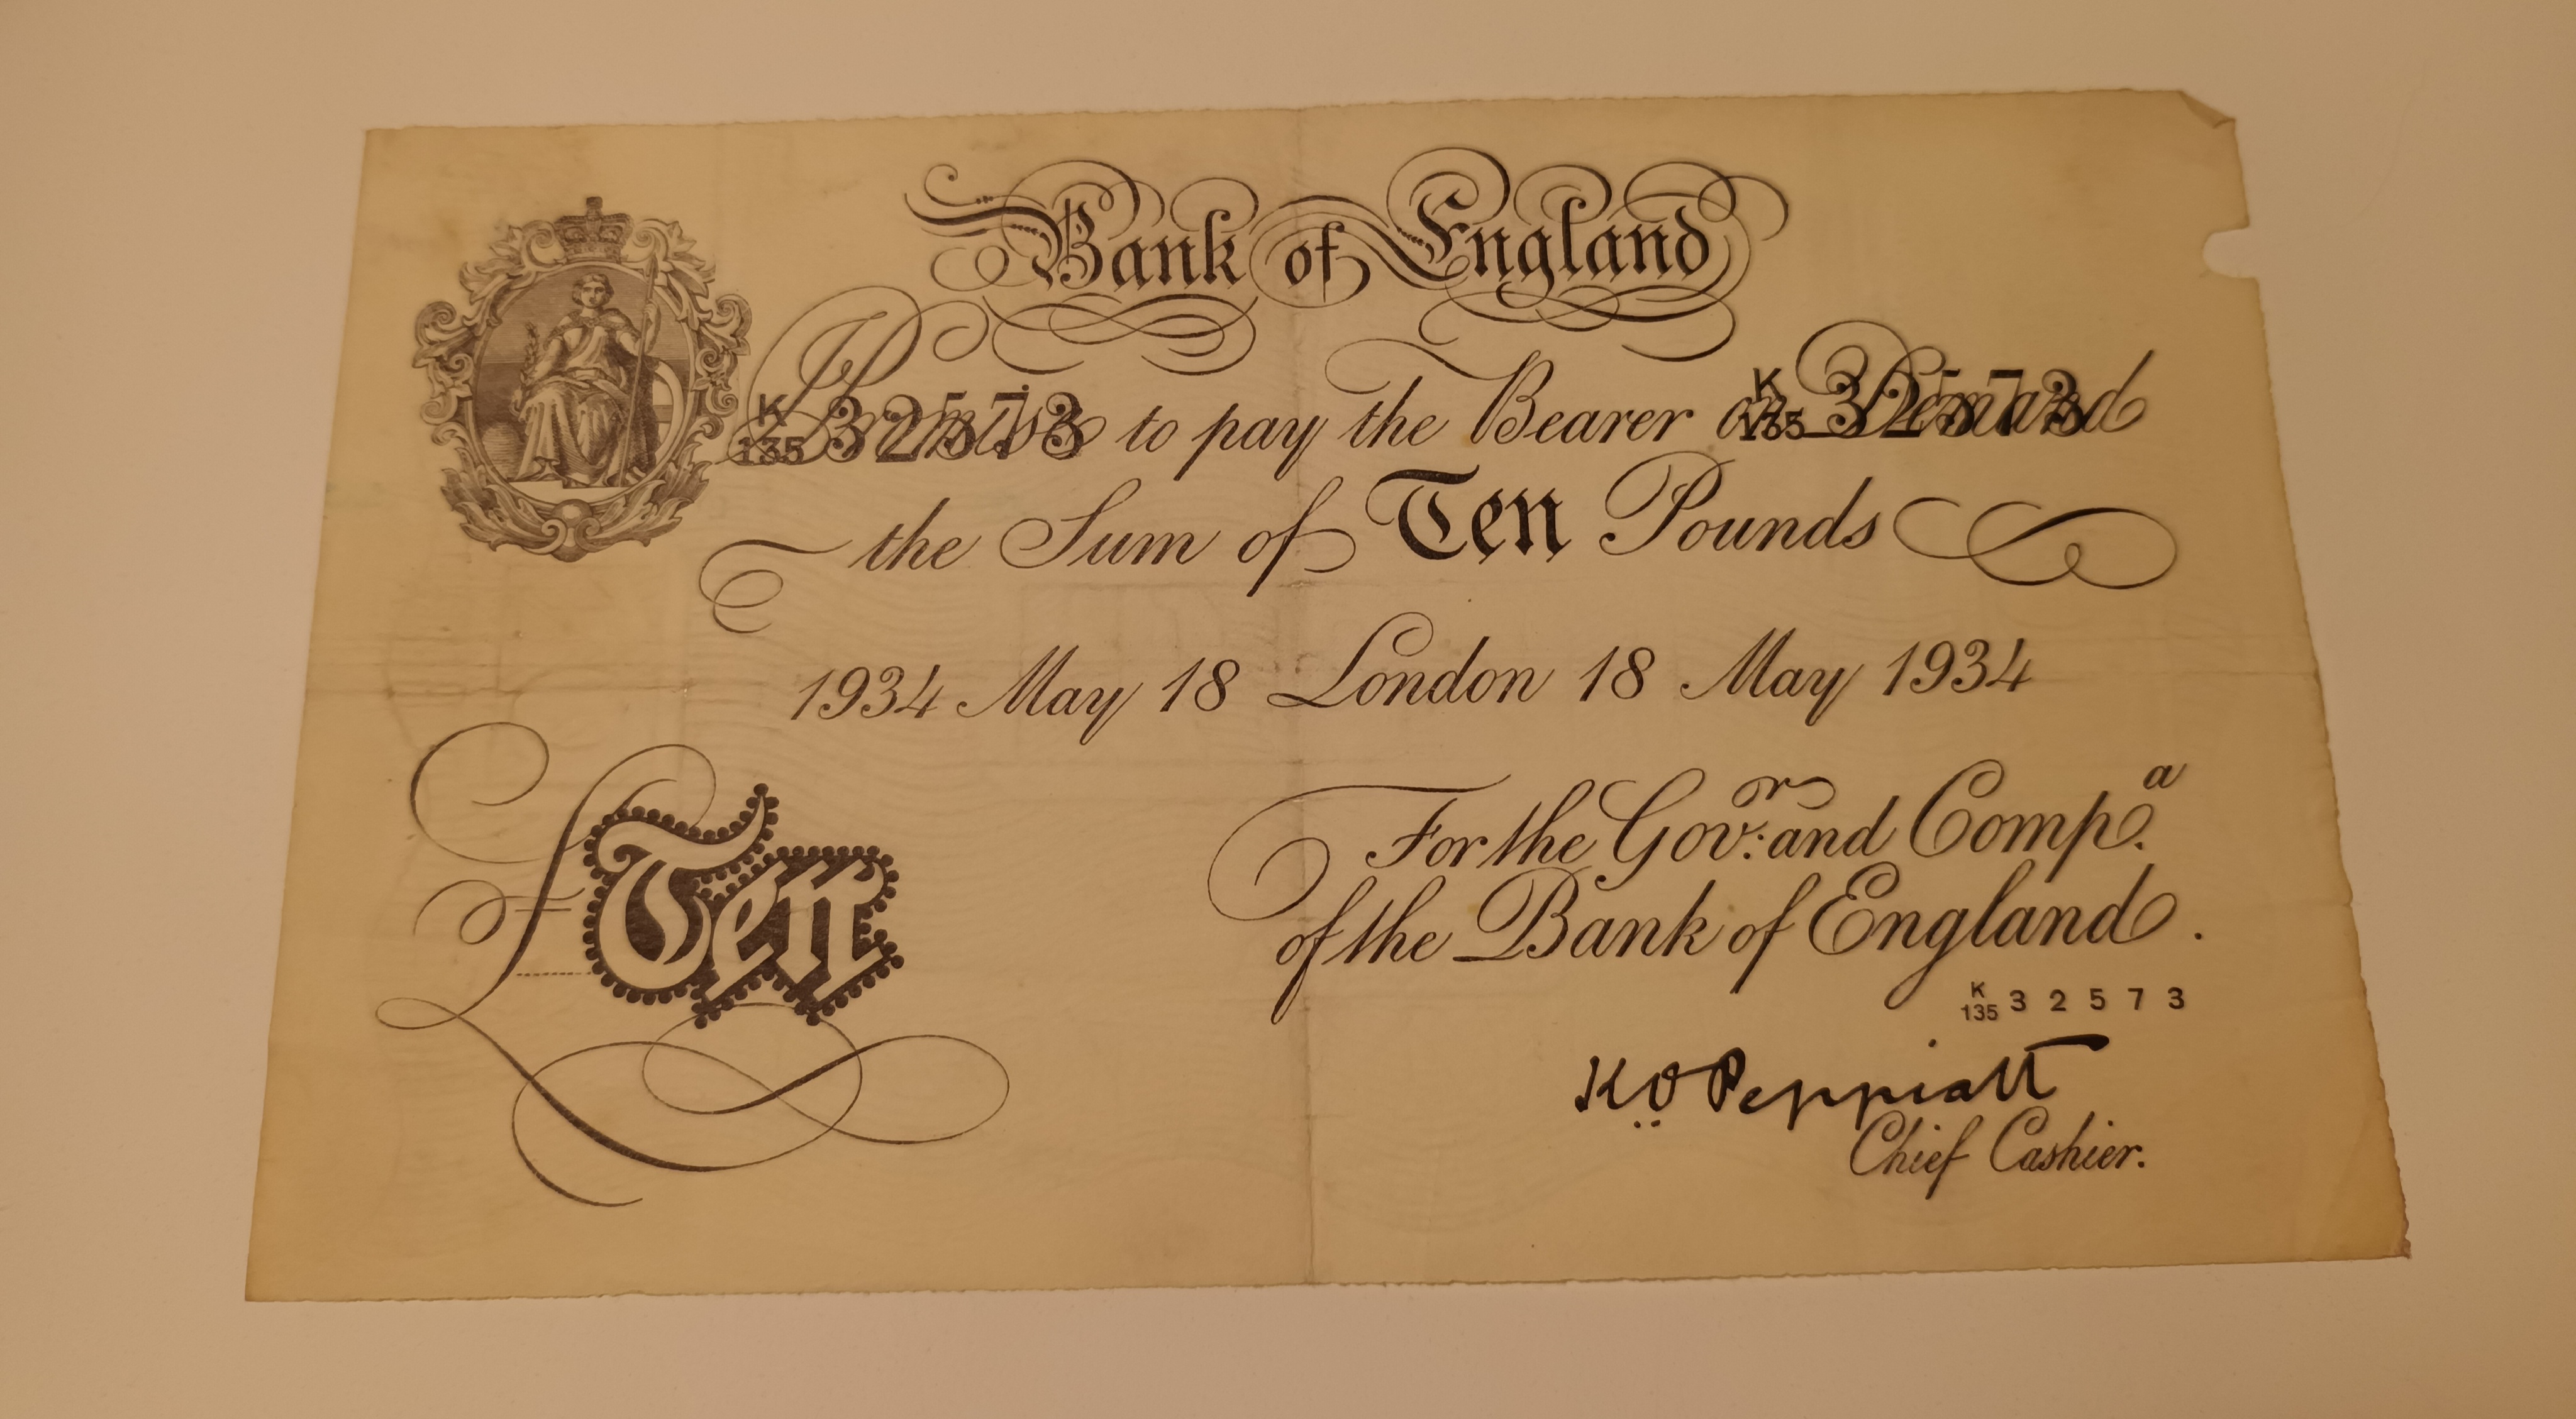 Bank of England
K
135 32573 K
135 32573
I Promise to pay the Bearer on Demand
the Sum of Ten Pounds
1934 May 18 London 18 May 1934
For the Gov:or and Compa.
of the Bank of England.
£Ten
K
135 3 2 5 7 3
K O Peppiatt
Chief Cashier.